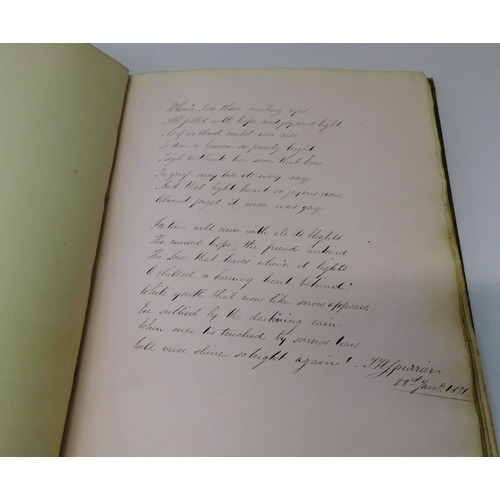 Whene'er I see those smiling eyes
All filled with hope and joy and light
As if no cloud could ever rise
To dim a heaven so purely bright
I sigh to think how soon that brow
In grief may lose its every ray
And that light heart so joyous now
Almost forget it once was gay

For time will come with all its blights
The ruined hope, the friend unkind
The love that leaves where'er it lights
A chilled or burning heart behind!
While youth that now like snow appears
Ere sullied by the darkening rain
When once 'tis touched by sorrows tears
Will never shine so bright again!
J H Spurrier
28th Jany. 1831